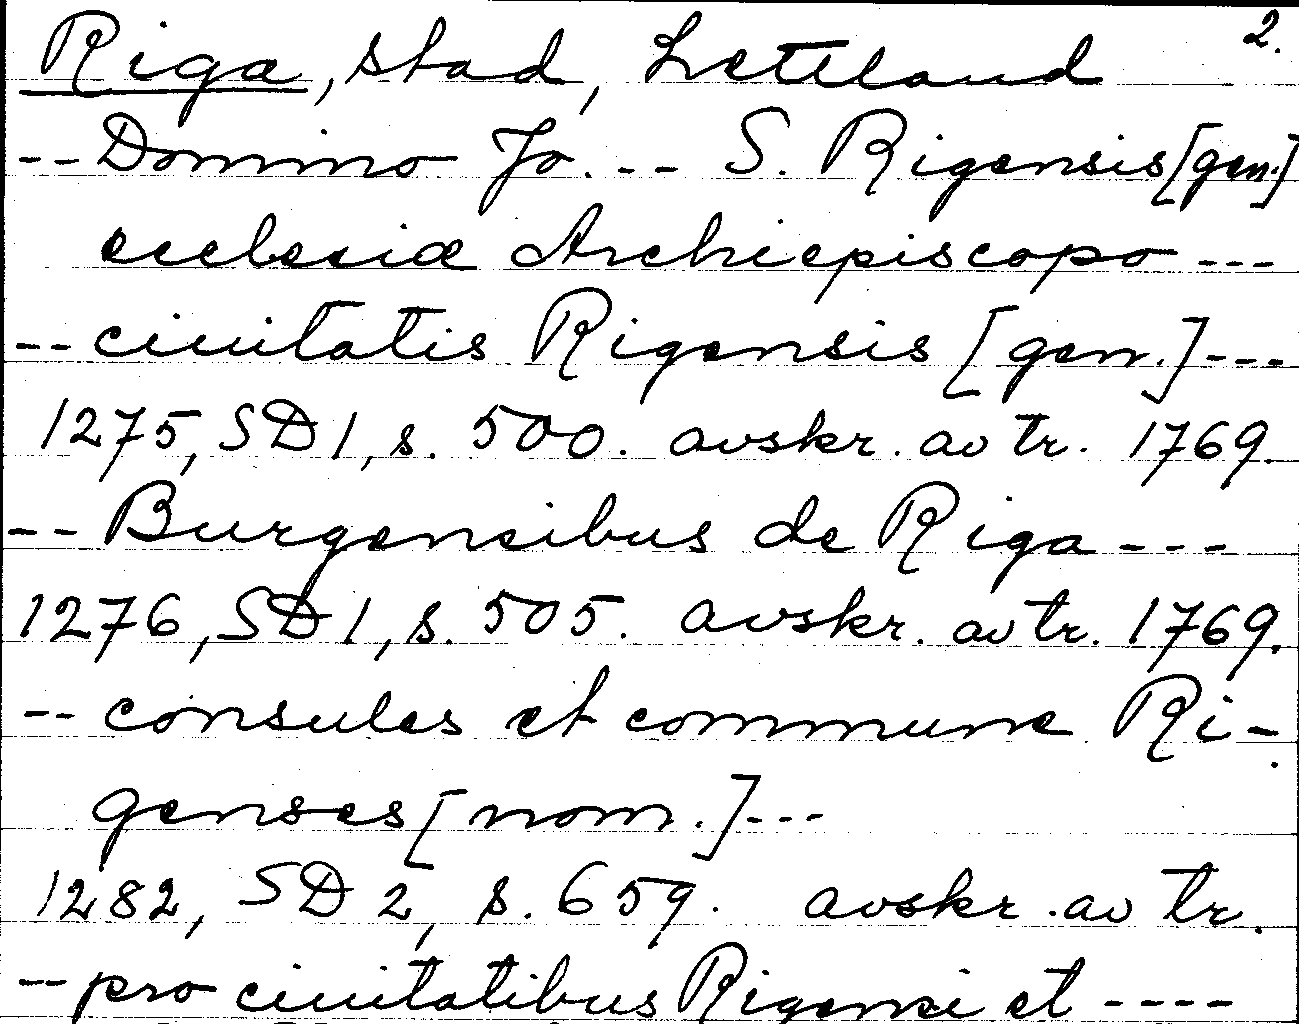 2.
Riga, stad, Lettland
-- Domino Jo. -- S. Rigensis [gen.]
ecclesiæ Archiepiscopo ---
-- ciuitatis Rigensis [gen.] ---
1275, SD 1, s. 500. avskr. av tr. 1769.
-- Burgensibus de Riga ---
1276, SD 1, s. 505. avskr. av tr. 1769.
-- consules et commune Ri-
genses [nom.] ---
1282, SD 2, s. 659. avskr. av tr.
-- pro ciuitatibus Rigensi et ----